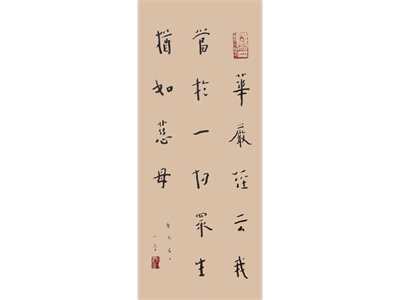 華嚴經云我
當於一切眾生
猶如慈母